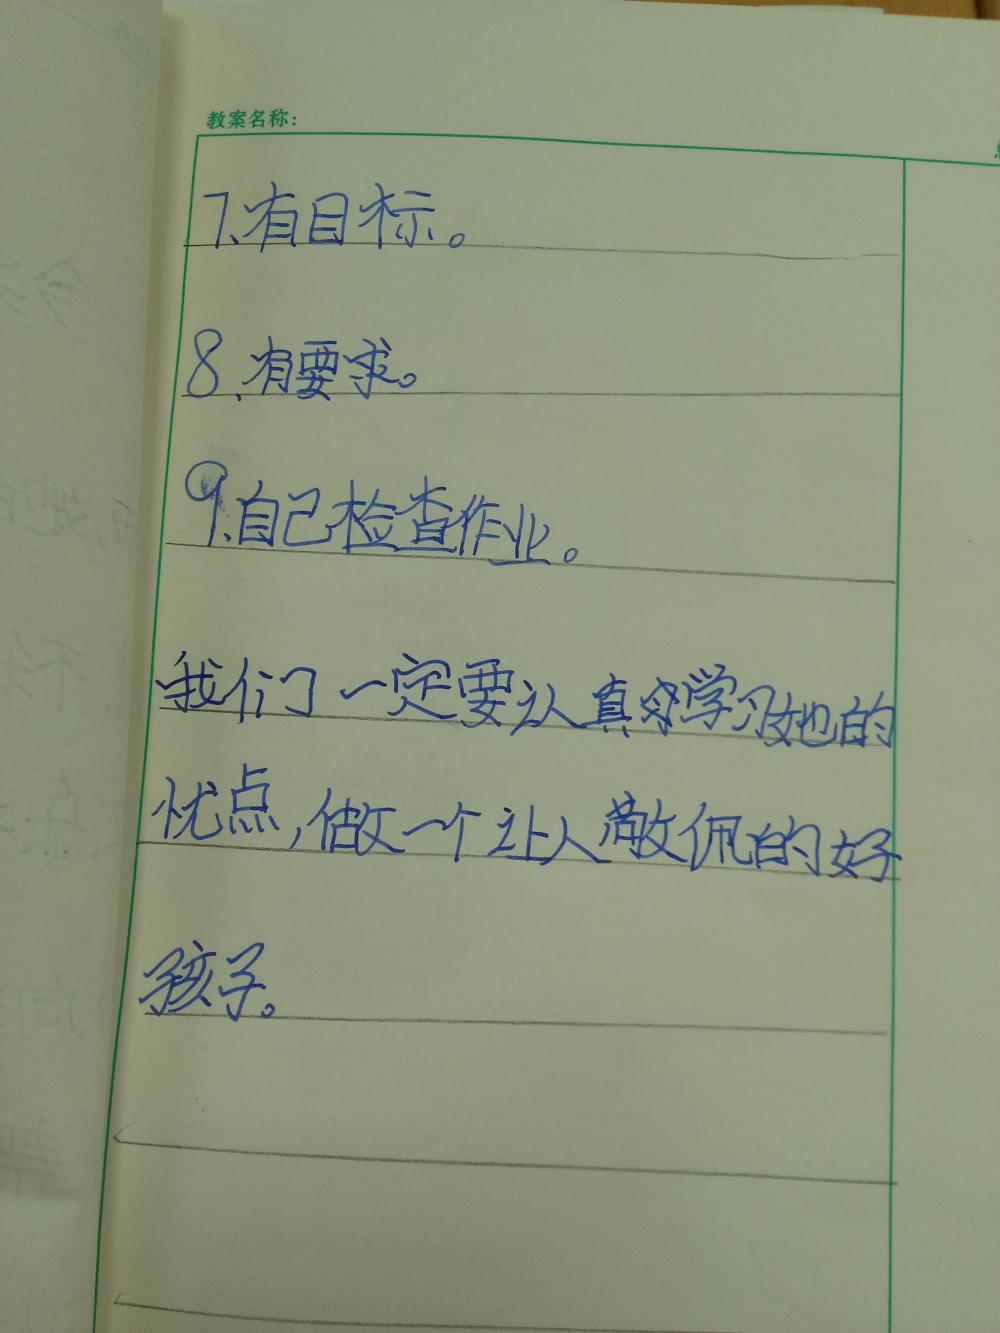 教案名称:
7、有目标。
8、有要求。
9、自己检查作业。
我们一定要认真学习她的
忧点,做一个让人敬佩的好
孩子。